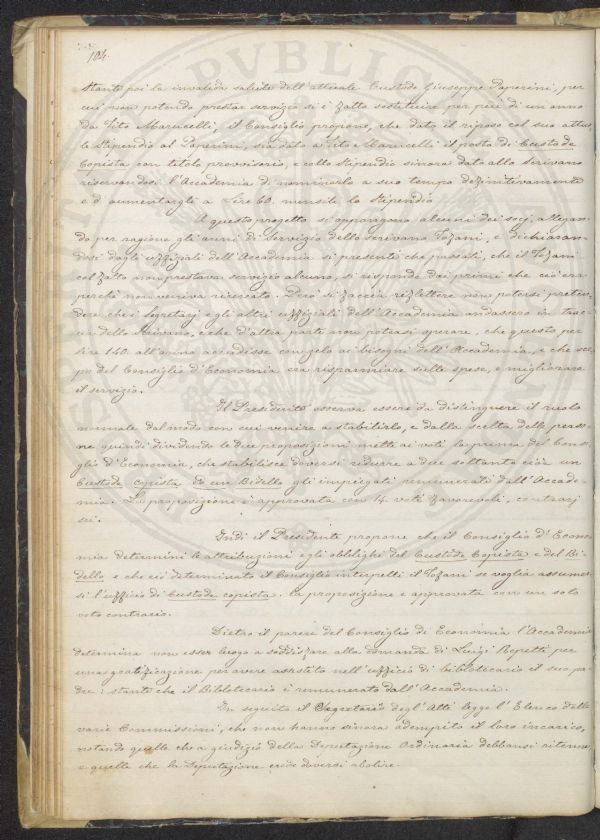 104.
stante poi la invalida salute dell'attuale Custode Giuseppe Paperini, per
cui non potendo prestar servizio si è fatto sostituire per più di un anno
da Vito Marucelli, il Consiglio propone, che dato il riposo col suo attua-
le stipendio al Paperini, sia dato a Vito Marucelli il posto di Custode
Copista con titolo provvisorio, e collo stipendio sinora dato allo scrivano
riservandosi l'Accademia di nominarlo a suo tempo definitivamente
e d'aumentargli a Lire 60. mensili lo stipendio
A questo progetto si oppongono alcuni dei socj, allegan-
do per ragione gli anni di servizio dello scrivano Tozani, e dichiaran-
dosi dagli uffiziali dell'Accademia sì presenti che passati, che il Tozani
col fatto non prestava servizio alcuno, si risponde dai primi che ciò era
perchè non veniva ricercato. Però si faccia riflettere non potersi preten-
dere che i segretarj e gli altri uffiziali dell'Accademia andassero in trac-
cia dello scrivano, e che d'altra parte non poteasi sperare, che questo per
lire 140. all'anno accudisse con zelo ai bisogni dell'Accademia, e che sco-
po del Consiglio d'Economia era risparmiare sulle spese, e migliorare
il servizio.
Il Presidente osserva essere da distinguere il ruolo
normale dal modo con cui venire a stabilirlo, e dalla scelta delle perso-
ne quindi dividendo le due proposizioni mette ai voti la prima del Consi-
glio d'Economia, che stabilisce doversi ridurre a due soltanto cioè un
Custode copista ed un Bidello gli impiegati remunerati dall'Accade-
mia. La proposizione è approvata con 14. voti favorevoli, contrarj
sei.
Indi il Presidente propone che il Consiglio d'Econo-
mia determini le attribuzioni e gli obblighi del Custode Copista e del Bi-
dello e che ciò determinato il Consiglio interpelli il Tozani se voglia assumer-
si l'uffizio di Custode copista. la proposizione è approvata con un solo
voto contrario.
Dietro il parere del Consiglio di Economia l'Accademia
determina non esser luogo a soddisfare alla domanda di Luigi Repetti per
una gratificazione per avere assistito nell'ufficio di bibliotecario il suo pa-
dre; stante che il Bibliotecario è remunerato dall'Accademia.
In seguito il Segretario degl'Atti legge l'Elenco delle
varie Commissioni, che non hanno sinora adempito il loro incarico,
notando quelle che a giudizio della Deputazione Ordinaria debbansi ritenere,
e quelle che la Deputazione crede doversi abolire.